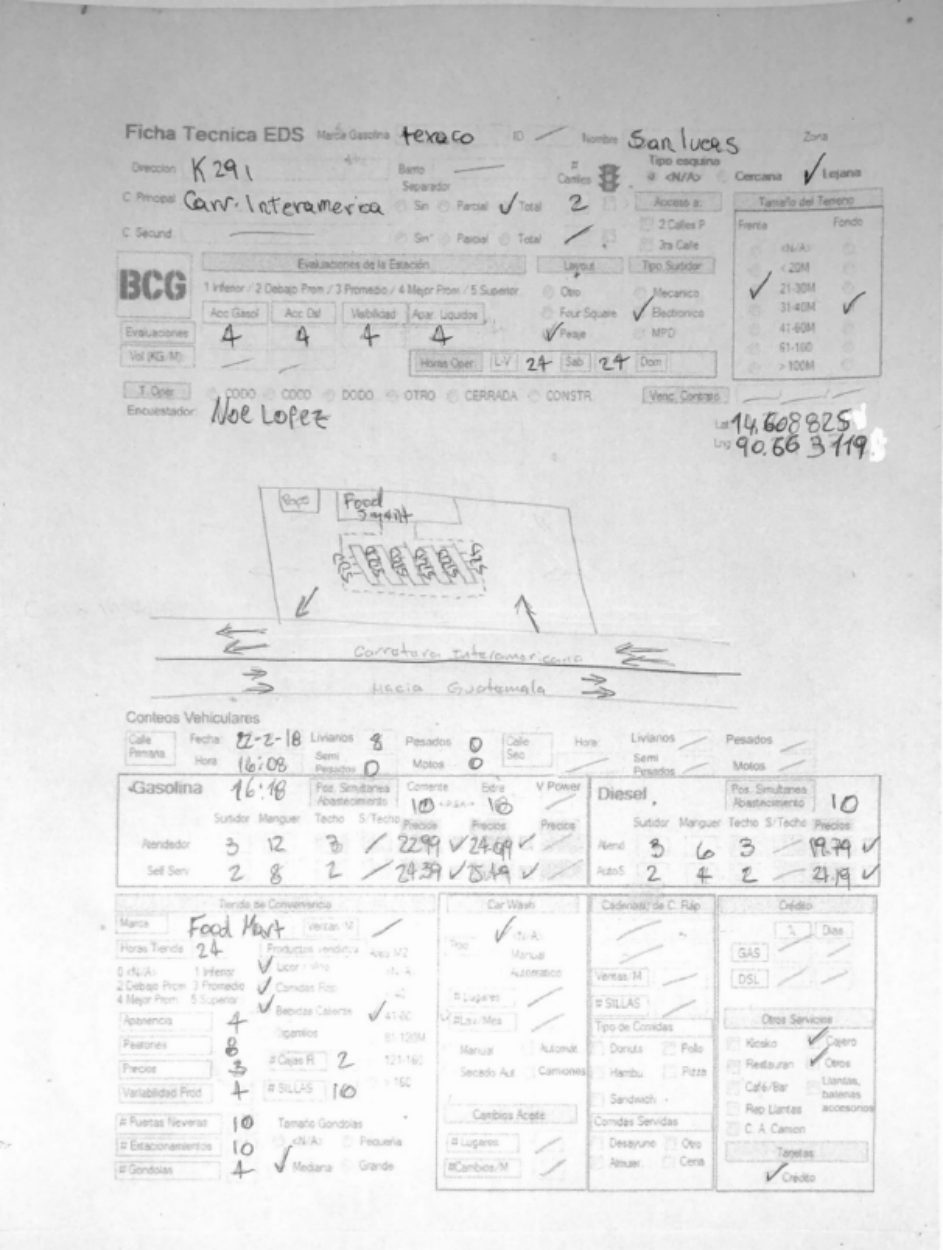 Ficha Tecnica EDS Marca Gasolina texaco ID Nombre San lucas Zona
Direccion K 29 1 Barrio # Carriles Tipo esquina <N/A> Cercana Lejana
C Principal Carr. Interamerica Separador Sin Parcial Total 2 Acceso a: Tamaño del Terreno
C Secund. Sin Parcial Total 2 Calles P 3ra Calle Frente Fondo
BCG Evaluaciones de la Estación Layout Tipo Surtidor <N/A>
1 Inferior / 2 Debajo Prom / 3 Promedio / 4 Mejor Prom / 5 Superior Otro Mecanico < 20M
Acc Gasol Acc Dsl Visibilidad Apar. Liquidos Four Square Electronico 21-30M
Evaluaciones 4 4 4 4 Peaje MPD 31-40M
41-60M
Vol (KG/M): Horas Oper L-V 24 Sab 24 Dom 61-100
> 100M
T. Oper CODO COCO DODO OTRO CERRADA CONSTR. Venc. Contrato
Encuestador Noe Lopez
Lat 14.608825
Lng 90.663119
Food
Carretera Interamericana
Hacia Guatemala
Conteos Vehiculares
Calle Primaria Fecha 22-2-18 Livianos 8 Pesados 0 Calle Sec Hora Livianos Pesados
Hora 16:08 Semi Pesados 0 Motos 0 Semi Pesados Motos
Gasolina 16:18 Pos. Simultanea Abastecimiento Corriente 10 Extra 18 V Power Diesel Pos. Simultanea Abastecimiento 10
Surtidor Manguer Techo S/Techo Precios Precios Precios Surtidor Manguer Techo S/Techo Precios
Atendedor 3 12 3 22.99 24.09 Atend 3 6 3 19.79
Self Serv 2 8 2 24.39 25.49 AutoS 2 4 2 21.19
Tienda de Conveniencia Car Wash Cadenas de C. Rap Crédito
Marca Food Mart Ventas M <N/A> % Dias
Horas Tienda 24 Productos vendidos Area M2 Tipo Manual GAS
0 <N/A> 1 Inferior Licor / Vino Automatico Ventas M DSL
2 Debajo Prom 3 Promedio Comidas Rap
4 Mejor Prom 5 Superior Bebidas Caliente 41-80 # Lugares # SILLAS
Apariencia 4 Cigarrillos 81-120M Tipo de Comidas Otros Servicios
Peatones 8 Manual Automat Donuts Pollo Kiosko Cajero
Precios 3 # Cajas R 2 121-160 Secado Aut Camiones Hambu Pizza Restauran Otros
Variabilidad Prod 4 # SILLAS 10 > 160 Sandwich Café/Bar Llantas, baterias accesorios
# Puertas Neveras 10 Tamaño Gondolas Cambios Aceite Comidas Servidas Rep Llantas
# Estacionamientos 10 <N/A> Pequeña # Lugares Desayuno Otro C. A. Camion
# Gondolas 4 Mediana Grande #Cambios/M Almuer. Cena Tarjetas
Crédito